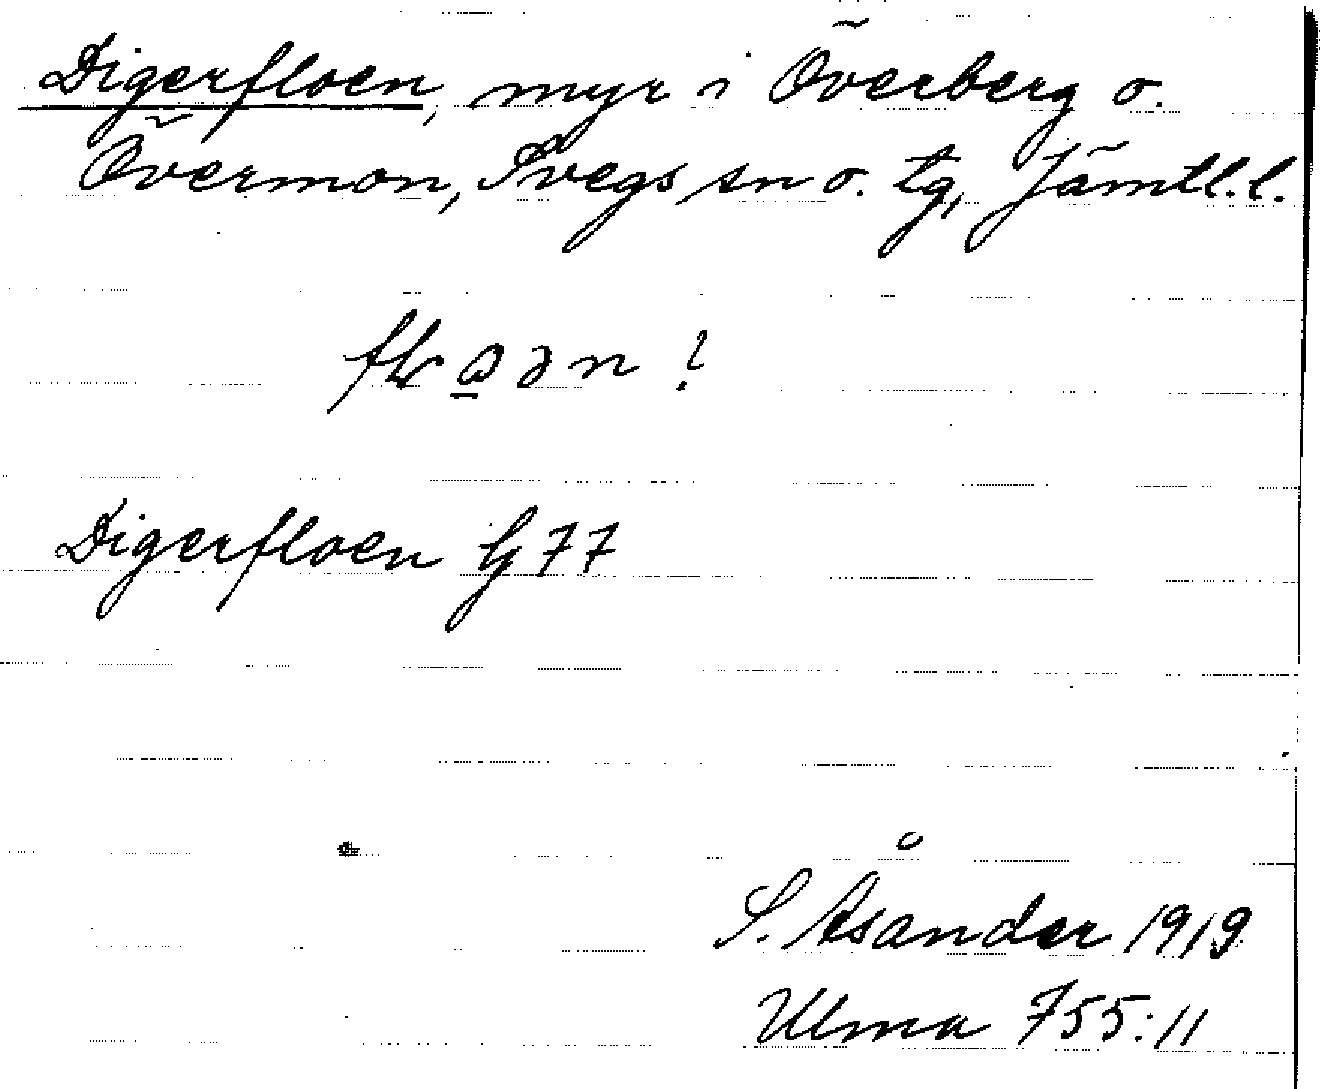 Digerfloen, myr i Överberg o.
Övermon, Svegs sn o. tg, Jämtl. l.
Digerfloen Gj 77
S. Åsander 1919
Ulma 755:11